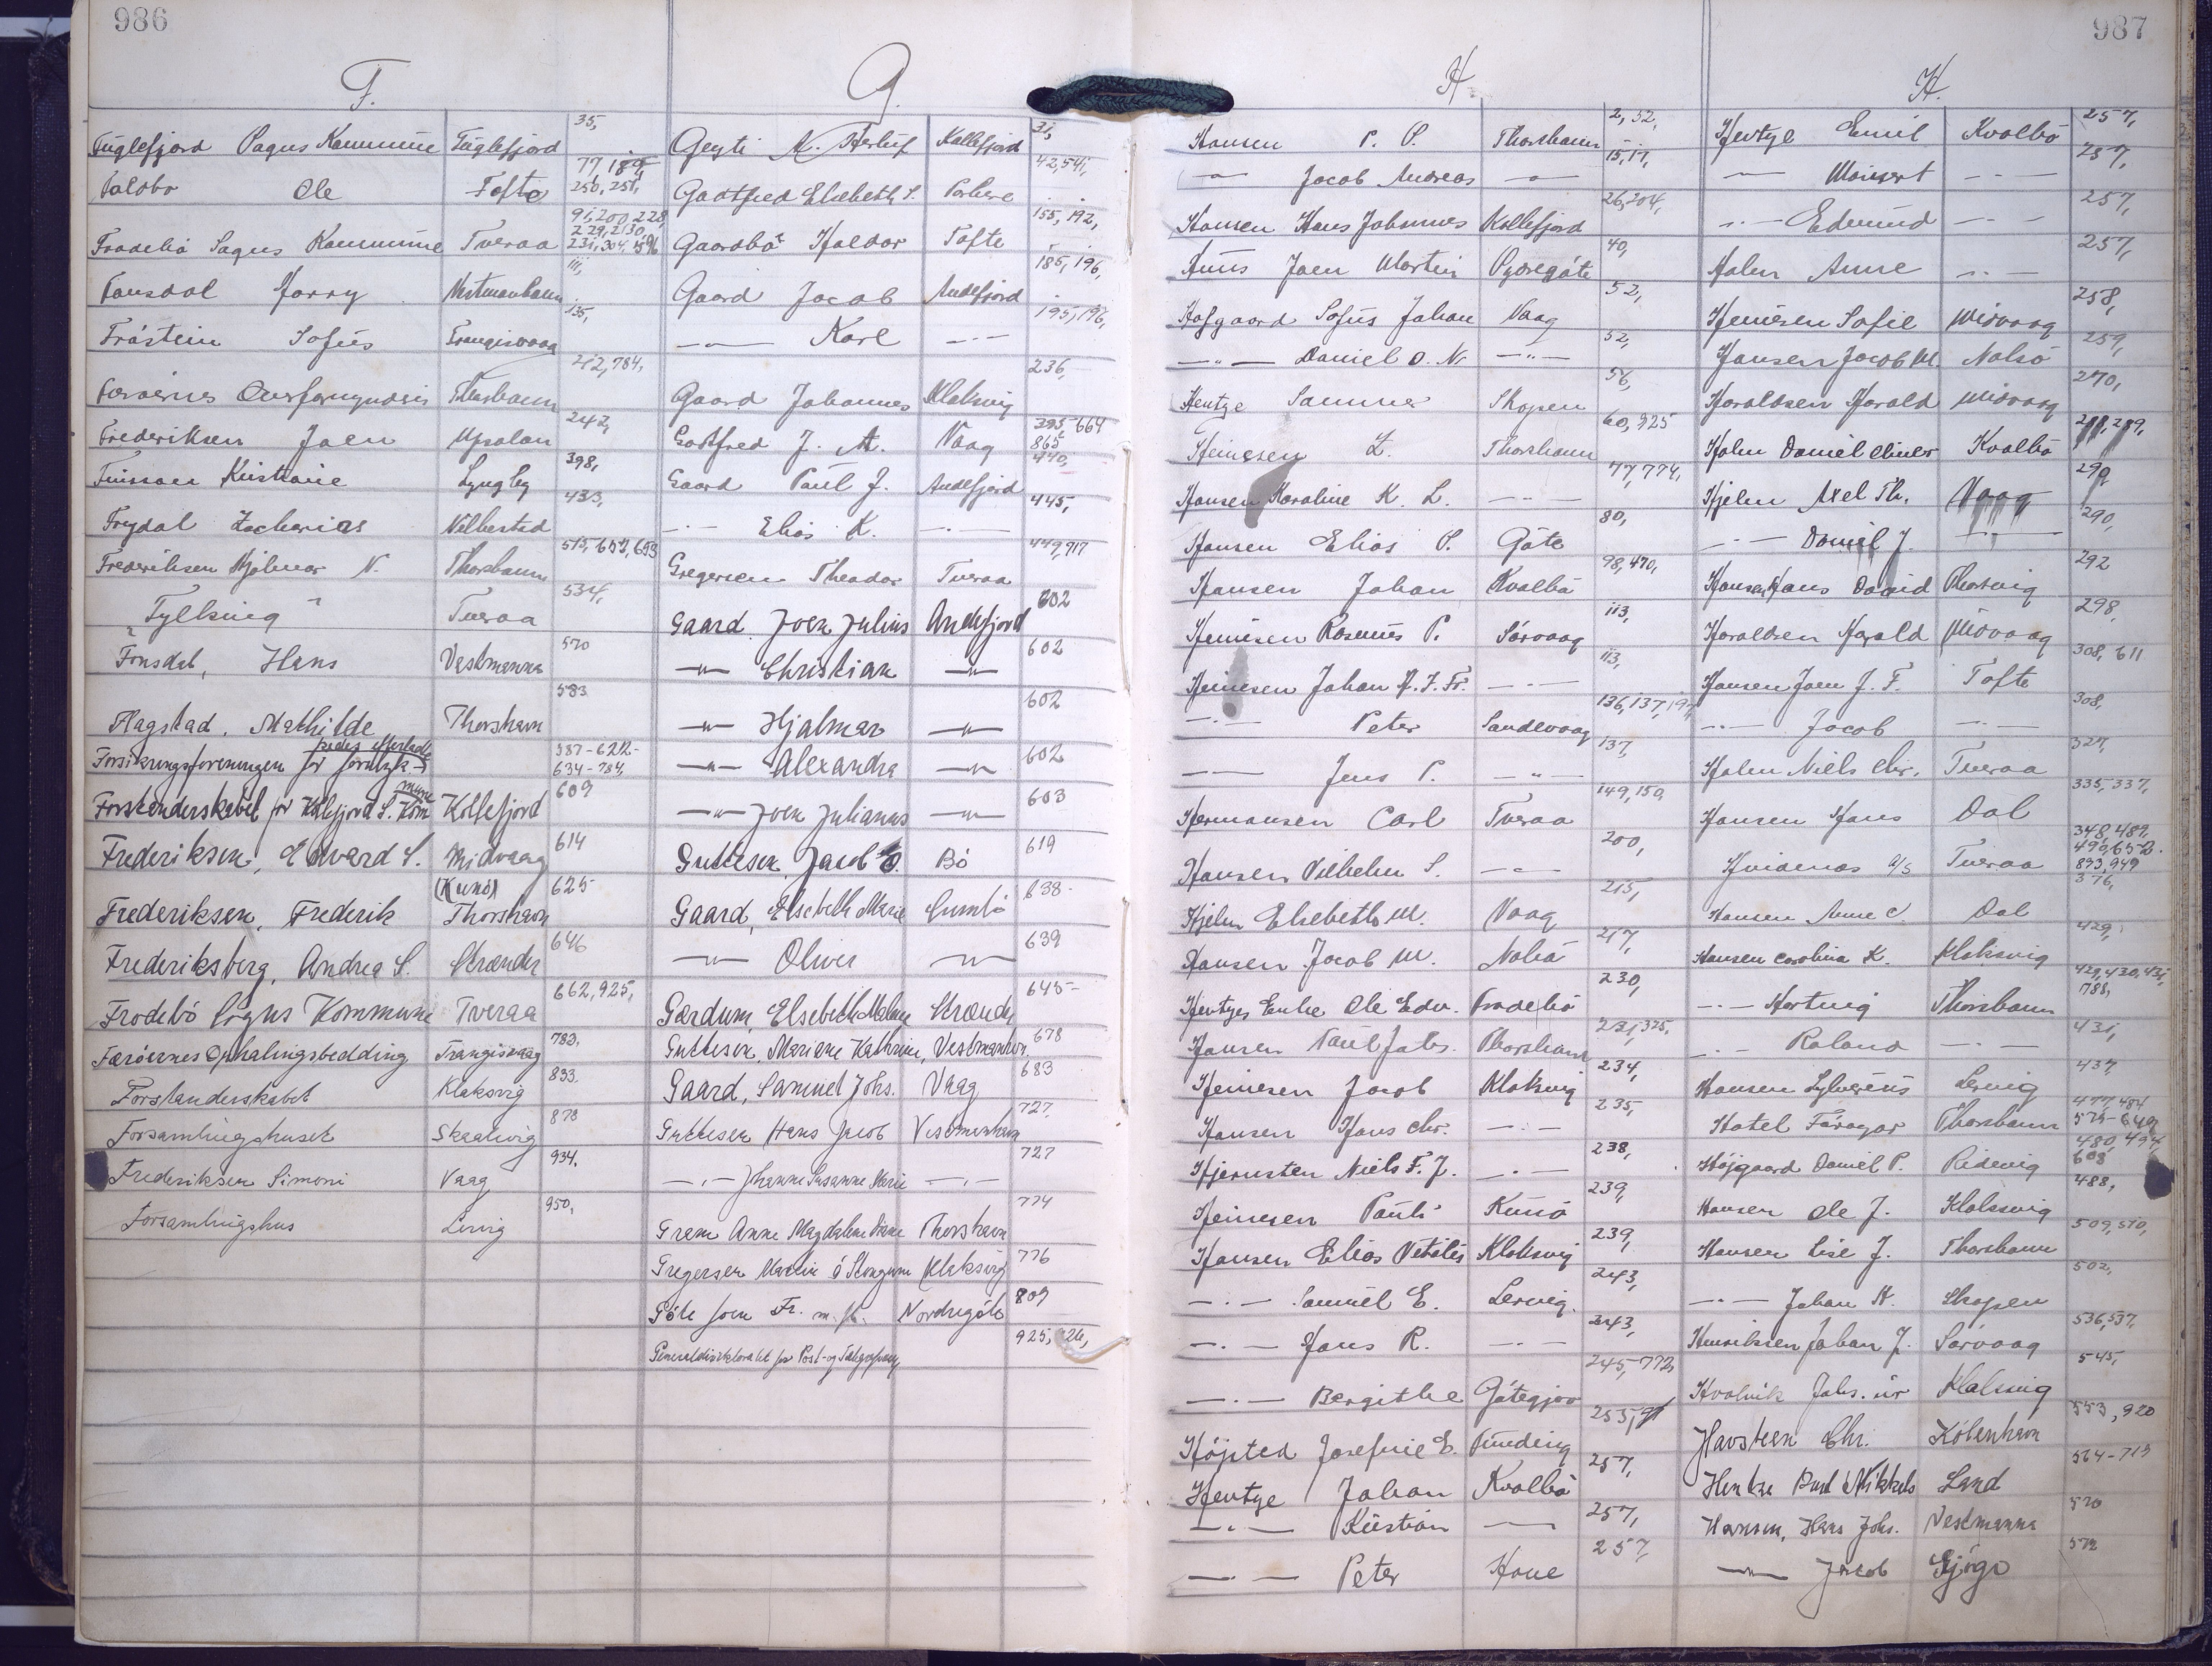 986
F.
Fuglefjord Sogns Kommune Fuglefjord 35,
Ole Tofte 77, 189, 250, 251,
Frodebö Sogns Kommune Tveraa 91, 200, 228, 229, 230, 231, 304, 596
Fonsdal Vestmanhavn 111,
Tróstein Sofus Trangisvaag 135,
Færoernes Thorshavn 212, 784,
Frederiksen Joen 242,
Finsson Kristane Lyngby 398,
Frydal Zacharias 433,
Frederiksen Hjalmar N. Thorshavn 515, 652, 653
"Fylking" Tveraa 534,
Fonsdal, Hans Vestmanna 570
Flagstad, Mathilde Thorshavn 583
Forsikringsforeningen for 587-622-634-784,
Forstanderskabet for Kollefjord S. Kommune Kollefjord 609
Frederiksen, Edvard S. Midvaag 614
Frederiksen, Frederik (Kunö) Thorshavn 625
Frederiksberg, Andrea S. Strænder 646
Frodebö Sogns Kommune Tveraa 662, 925,
Færöernes Ophalingsbedding Trangisvaag 783.
Forstanderskabet Klaksvig 833.
Forsamlingshuset Skaalevig 878
Frederiksen Simoni Vaag 934.
Forsamlingshus Lervig 950.
G.
Kollefjord 31,
Gaotfred Elsebeth S. Porkere 42, 541,
Gaardbö Haldor Tofte 155, 192,
Gaard Jacob Andefjord 185, 196,
—"— Karl —"— 195, 196,
Gaard Johannes Klaksvig 236,
Gaotfred J. A. Vaag 395, 664 865
Gaard Paul J. Andefjord 440,
—"— Elias K. —"— 445,
Gregersen Theodor Tveraa 449, 917
Gaard Joen Julius Andefjord 602
—"— Christian —"— 602
—"— Hjalmar —"— 602
—"— Alexandra —"— 602
—"— Joen Julianus —"— 603
Guttesen, Jacob O. Bö 619
Gaard, Elsebeth Marie Sumbö 638-
—"— Oliver —"— 639
Gærdum, Elsebeth Malene Strænder 645-
Guttesen, Mariane Kathrine, Vestmanhvn. 678
Gaard, Samuel Johs. Vaag 683
Guttesen Hans Jacob Vestmanhavn 727.
—"— Johanne Susanne Marie —"— 727
Grem Anne Magdalene Diane Thorshavn 774
Gregersen Martin á Stongum Klaksvig 776
Göte Joen Fr. m. fl. Nordregöte 809
Generaldirektoratet for Post- og Telegrafvæs. 925, 926,
987
H
Hansen P. S. Thorshavn 2, 52,
—"— Jacob Andreas —"— 15, 17,
Hansen Hans Johannes Kollefjord 26, 204,
Joen Martin Syderegöte 40,
Hofgaard Sofus Johan Vaag 52,
—"— Daniel O. N. —"— 52,
Hentze Sanna Skopen 56,
Heinesen Z. Thorshavn 60, 925
Hansen Karoline K. L. —"— 77, 774,
Hansen Elias S. Göte 80,
Hansen Johan Kvalbö 98, 470,
Heinesen Rasmus P. Sörvaag 113,
Heinesen Johan A. J. Fr. —"— 113,
—"— Peter Sandevaag 136, 137, 197,
—"— Jens P. —"— 137,
Hermansen Carl Tveraa 149, 150,
Hansen Vilhelm S. —"— 200,
Hjelm Elsebeth M. Vaag 215,
Hansen Jacob M. Nolsö 217,
Hentzes Enke Ole Edv. Frodebö 230,
Hansen Paul Johs. Thorshavn 231, 325,
Heinesen Jacob Klaksvig 234,
Hansen Hans Chr. —"— 235,
Hjernsten Niels F. J. —"— 238,
Heinesen Pauli Kunö 239,
Hansen Elias Vitalis Klaksvig 239,
—"— Samuel E. Lervig. 243,
—"— Hans R. —"— 243,
—"— Bergithe Götegjov 245, 772,
Höjsted Josefine E. Funding 253,
Hentze Johan Kvalbö 257,
—"— Kristian —"— 257,
—"— Peter Hove 257,
H.
Hentze Emil Kvalbö 257,
—"— —"— 257,
—"— Edmund —"— 257,
Holm Anne —"— 257,
Heinesen Sofie Midvaag 258,
Hansen Jacob M. Nolsö 259,
Haraldsen Harald Midvaag 270,
Holm Daniel Oliver Kvalbö 288, 289,
Hjelm Axel Th. Vaag 290
—"— Daniel J. —"— 290,
Hansen Hans David 292
Haraldsen Harald Midvaag 298,
Hansen Joen J. F. Tofte 308, 611
—"— Jacob —"— 308,
Holm Niels Chr. Tveraa 327,
Hansen Hans Dal 335, 337,
Hvidenæs A/S Tveraa 348, 489, 490, 652. 893, 949
Hansen Anne C. Dal 376,
Hansen Carolina K. Klaksvig 429,
—"— Hartvig Thorshavn 429, 430, 431, 788,
—"— Roland —"— 431,
Hansen Sylverius Lervig 437,
Hotel Föroyar Thorshavn 477, 484 575-649
Höjgaard Daniel P. Ridevig 480, 494, 608
Hansen Ole J. Klaksvig 488,
Hansen Lise J. Thorshavn 509, 510,
—"— Johan H. Skopen 502,
Henriksen Johan J. Sörvaag 536, 537,
Hvalvik Johs. úr Klaksvig 545,
Havsteen Chr. København 553, 920
Hentze Poul Mikkels Sand 564-713
Hansen, Hans Johs. Vestmanna 570
—"— Jacob Gjógv 572